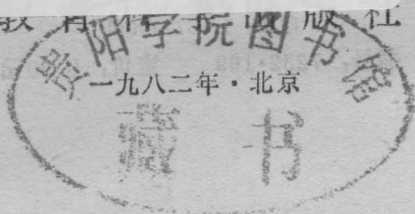 教育科学出版社
贵阳学院图书馆
一九八二年·北京
藏书